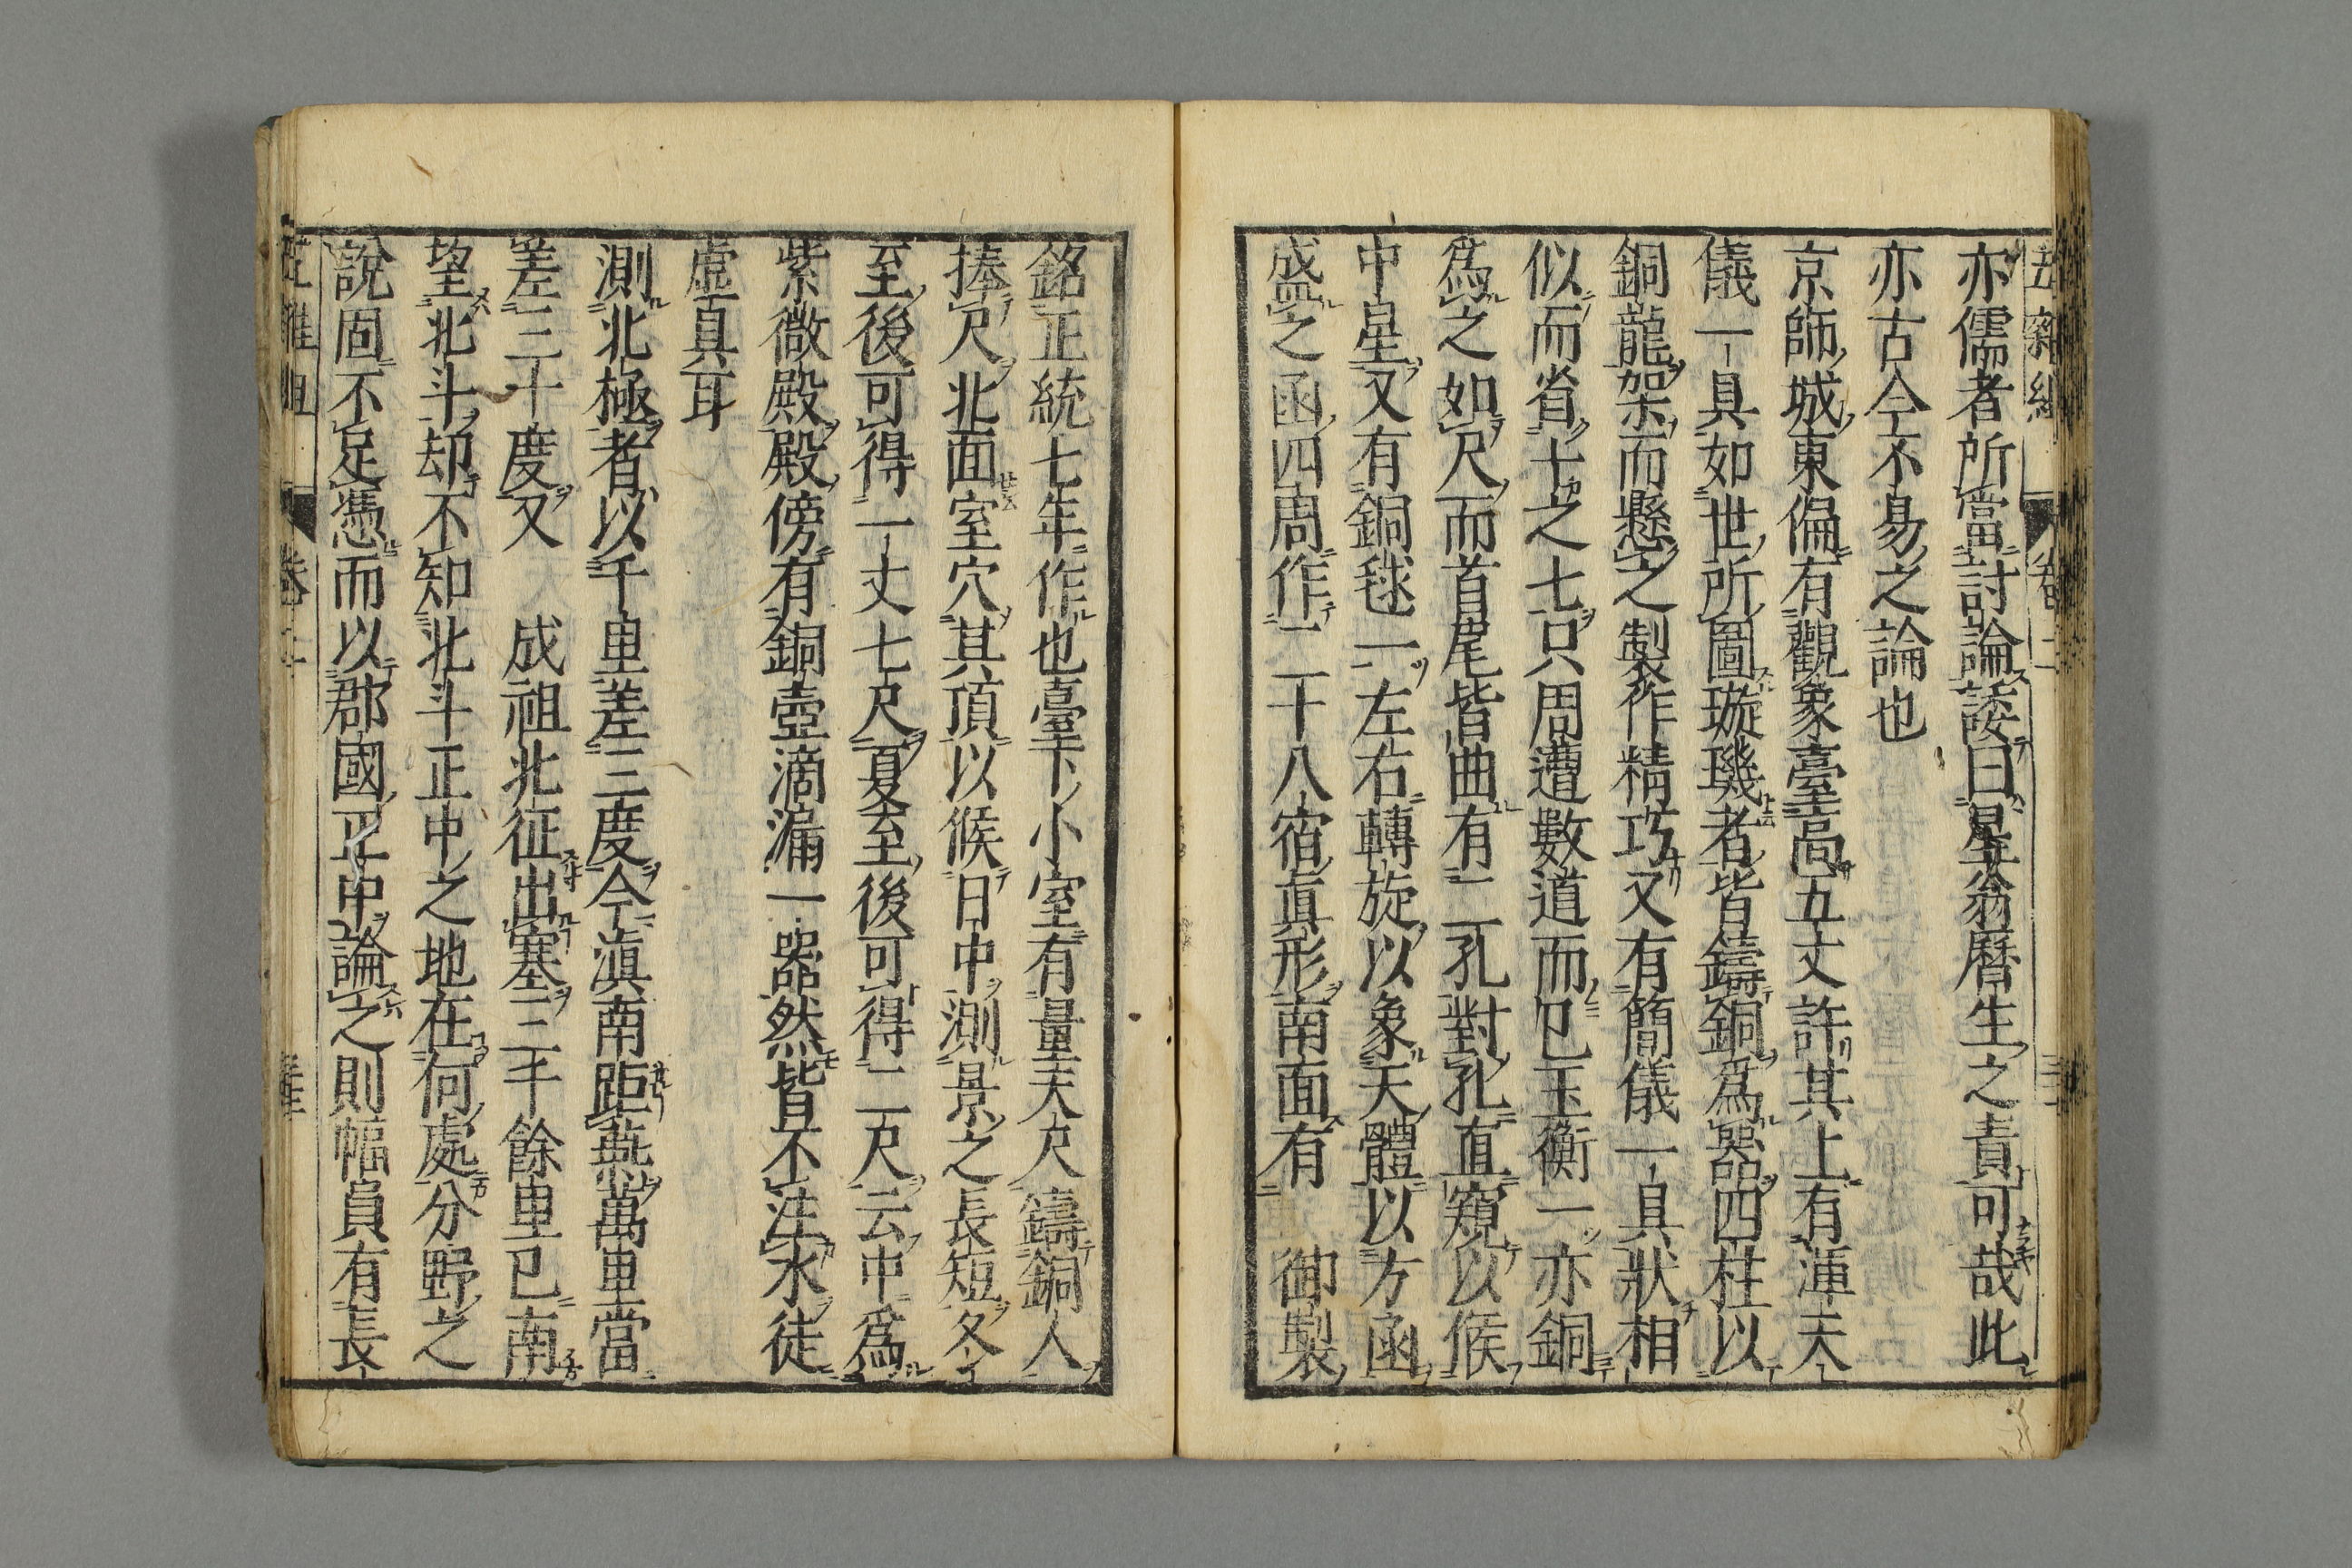 亦儒者所當討論諉曰星翁曆生之責可哉此
亦古今不易之論也
京師城東偏有觀象臺高五丈許其上有渾天
儀一具如世所圖璇璣者皆鑄銅爲器四柱以
銅龍架而懸之製作精巧又有簡儀一具狀相
似而省十之七只周遭數道而已玉衡一亦銅
爲之如尺而首尾皆曲有二孔對孔直窺以候
中星又有銅毬一左右轉旋以象天體以方函
盛之函四周作二十八宿眞形南面有　御製
銘正統七年作也臺下小室有量天尺鑄銅人
捧尺北面室穴其頂以候日中測景之長短冬
至後可得一丈七尺夏至後可得二尺云中爲
紫微殿殿傍有銅壺滴漏一器然皆不注水徒
虛具耳
測北極者以千里差三度今滇南距燕萬里當
差三十度又　成祖北征出塞三千餘里已南
望北斗却不知北斗正中之地在何處分野之
說固不足憑而以郡國正中論之則幅員有長